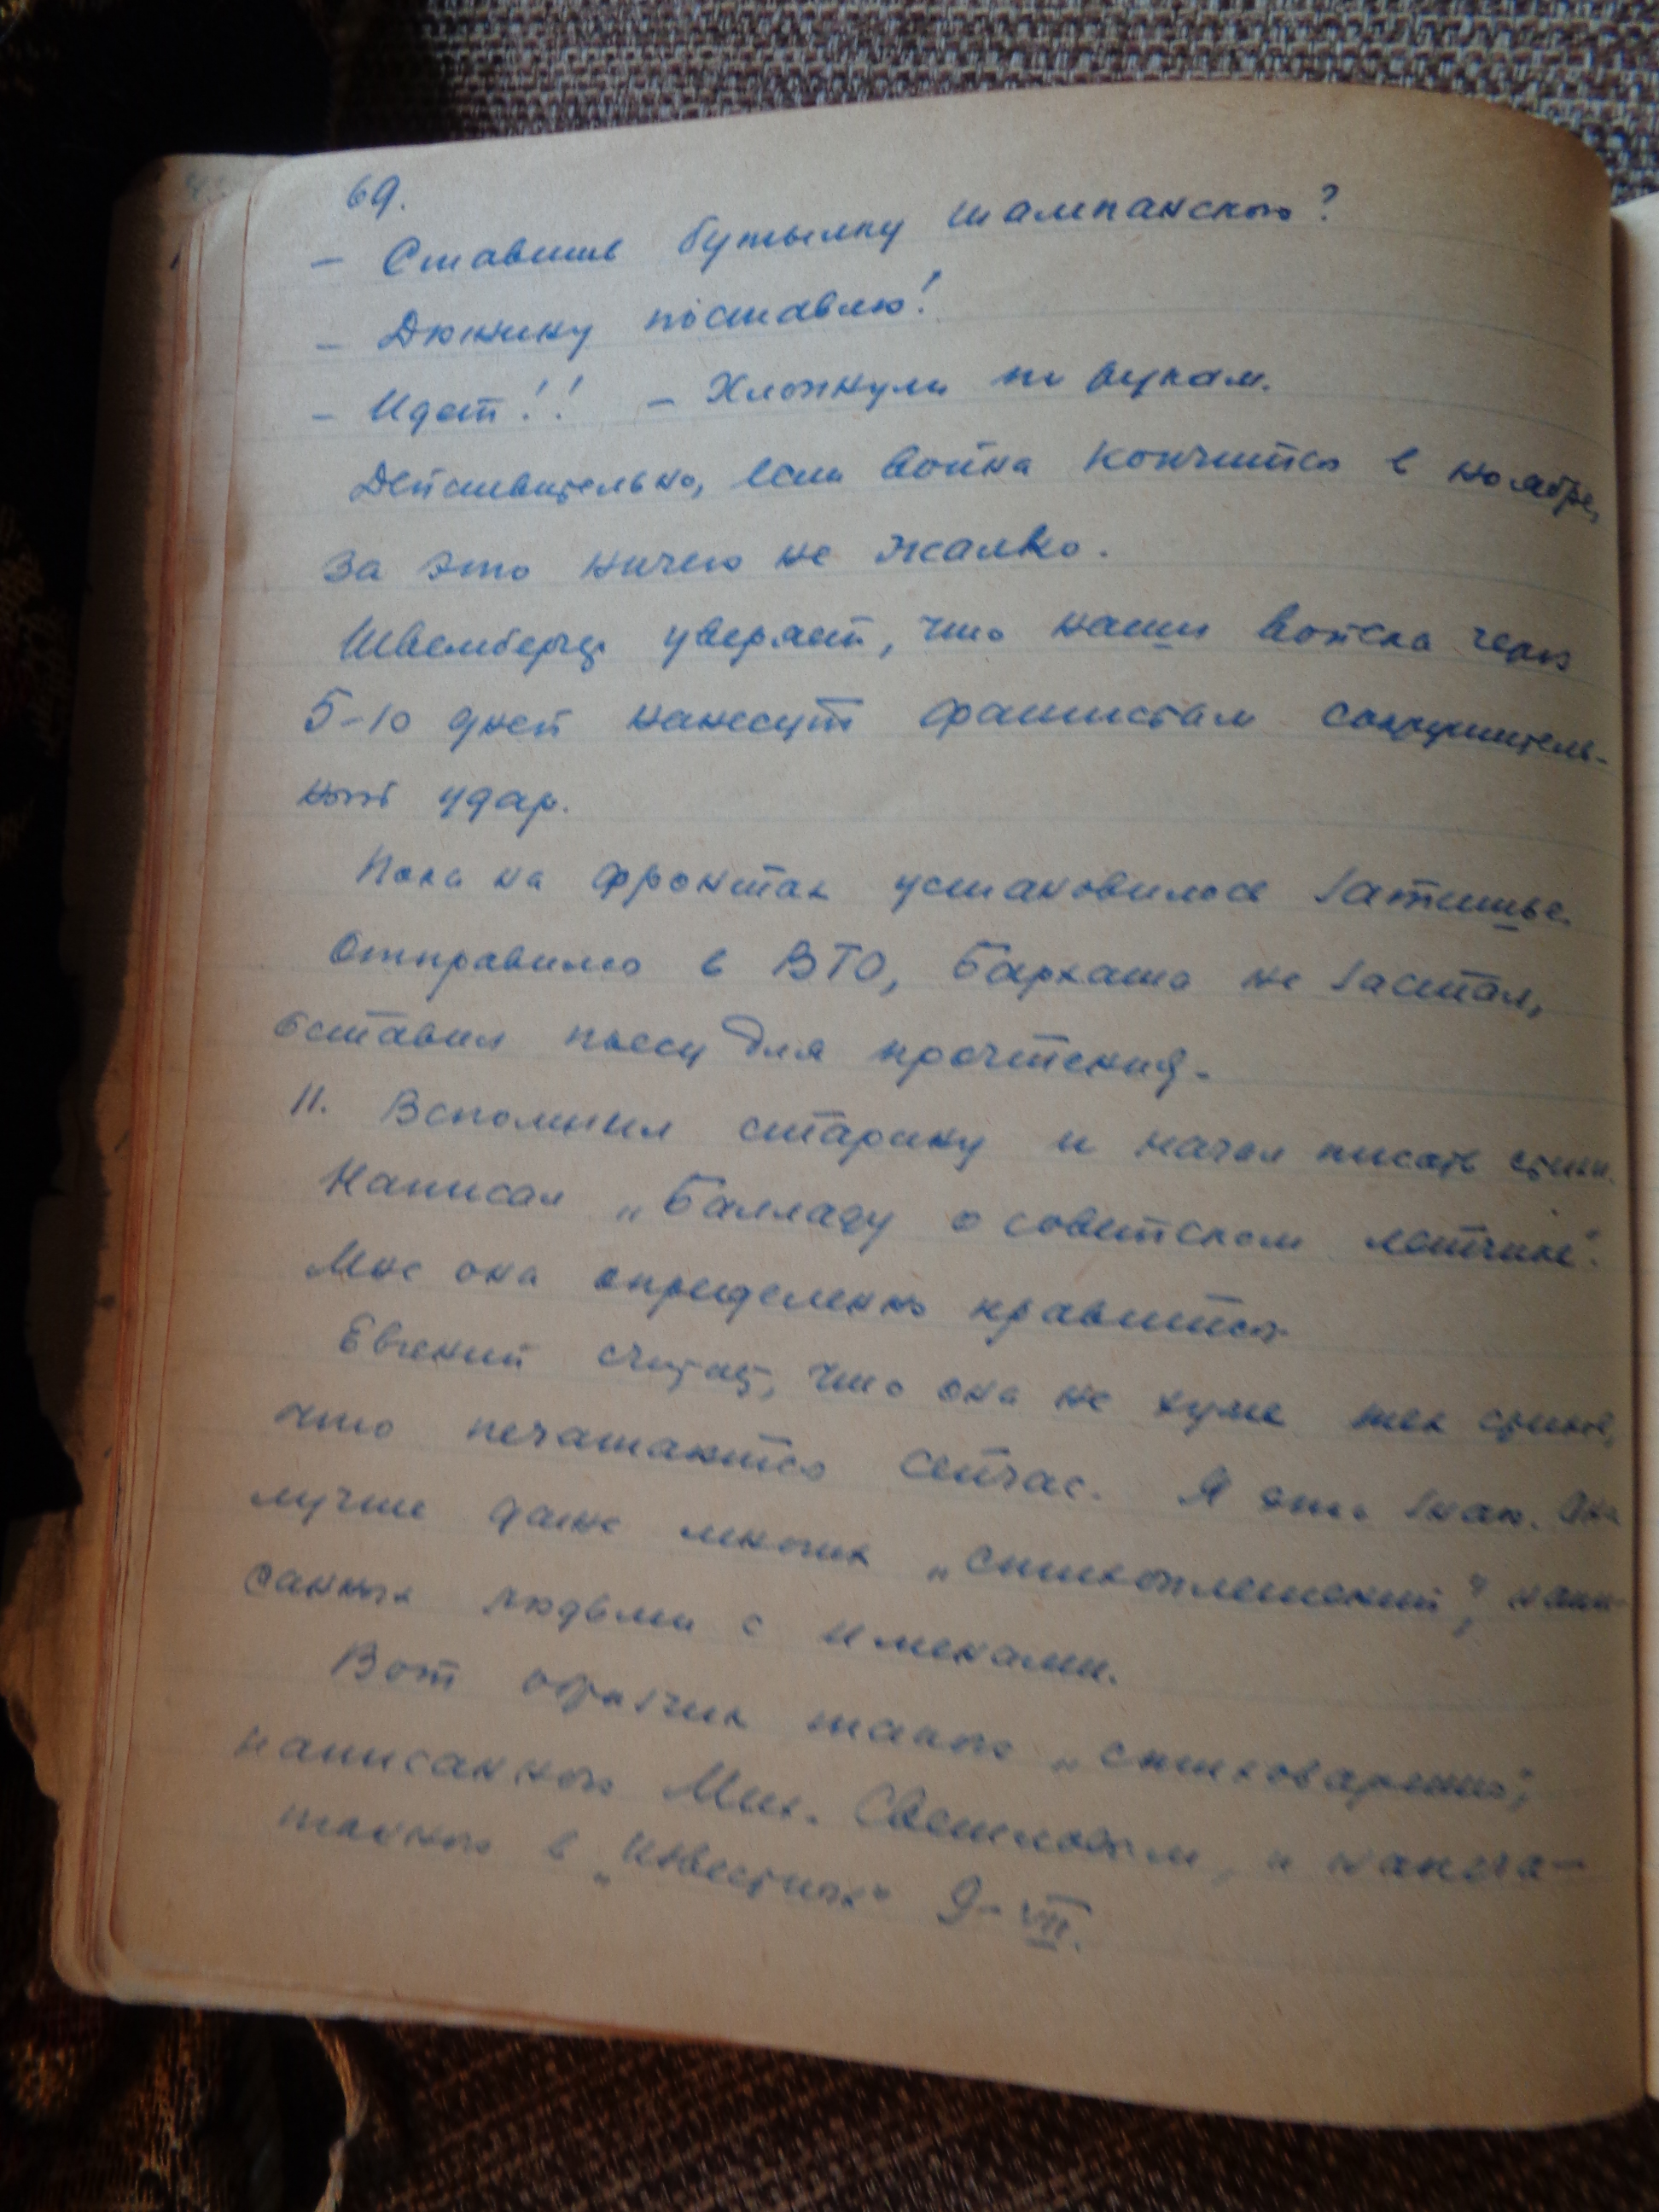 69.
– Ставишь бутылку шампанского?
– Дюжину поставлю!
– Идет!! – Хлопнули по рукам.
Действительно, если война кончится в ноябре,
за это ничего не жалко.
уверяет, что наши войска через
5–10 дней нанесут фашистам сокрушитель-
ный удар.
Пока на фронтах установилось затишье.
Отправился в ВТО, Бархаша не застал,
оставил пьесу для прочтения.
11. Вспомнил старину и начал писать стихи.
Написал „Балладу о советском летчике“.
Мне она определенно нравится.
Евгений считает, что она не хуже тех стихов,
что печатаются сейчас. Я это знаю. Она
лучше даже многих „стихоплетений“, напи-
санных людьми с именами.
Вот образчик такого „стиховарения“,
написанного Мих. Светловым, и напеча-
танного в „Известиях“ 9–VII.